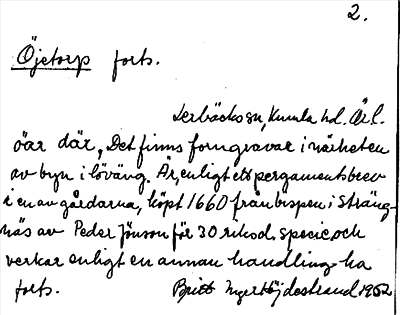 2.
Öjetorp forts.
Lerbäcks sn, Kumla hd. Örl.
öar där. Det finns forngravar i närheten
av byn i löväng. Är, enligt ett pergamentsbrev
i en av gårdarna, köpt 1660 från bispen i Sträng-
näs av Peder Jönson för 30 riksd. specie och
verkar enligt en annan handling ha
forts. Britt Hjdestrand 1952